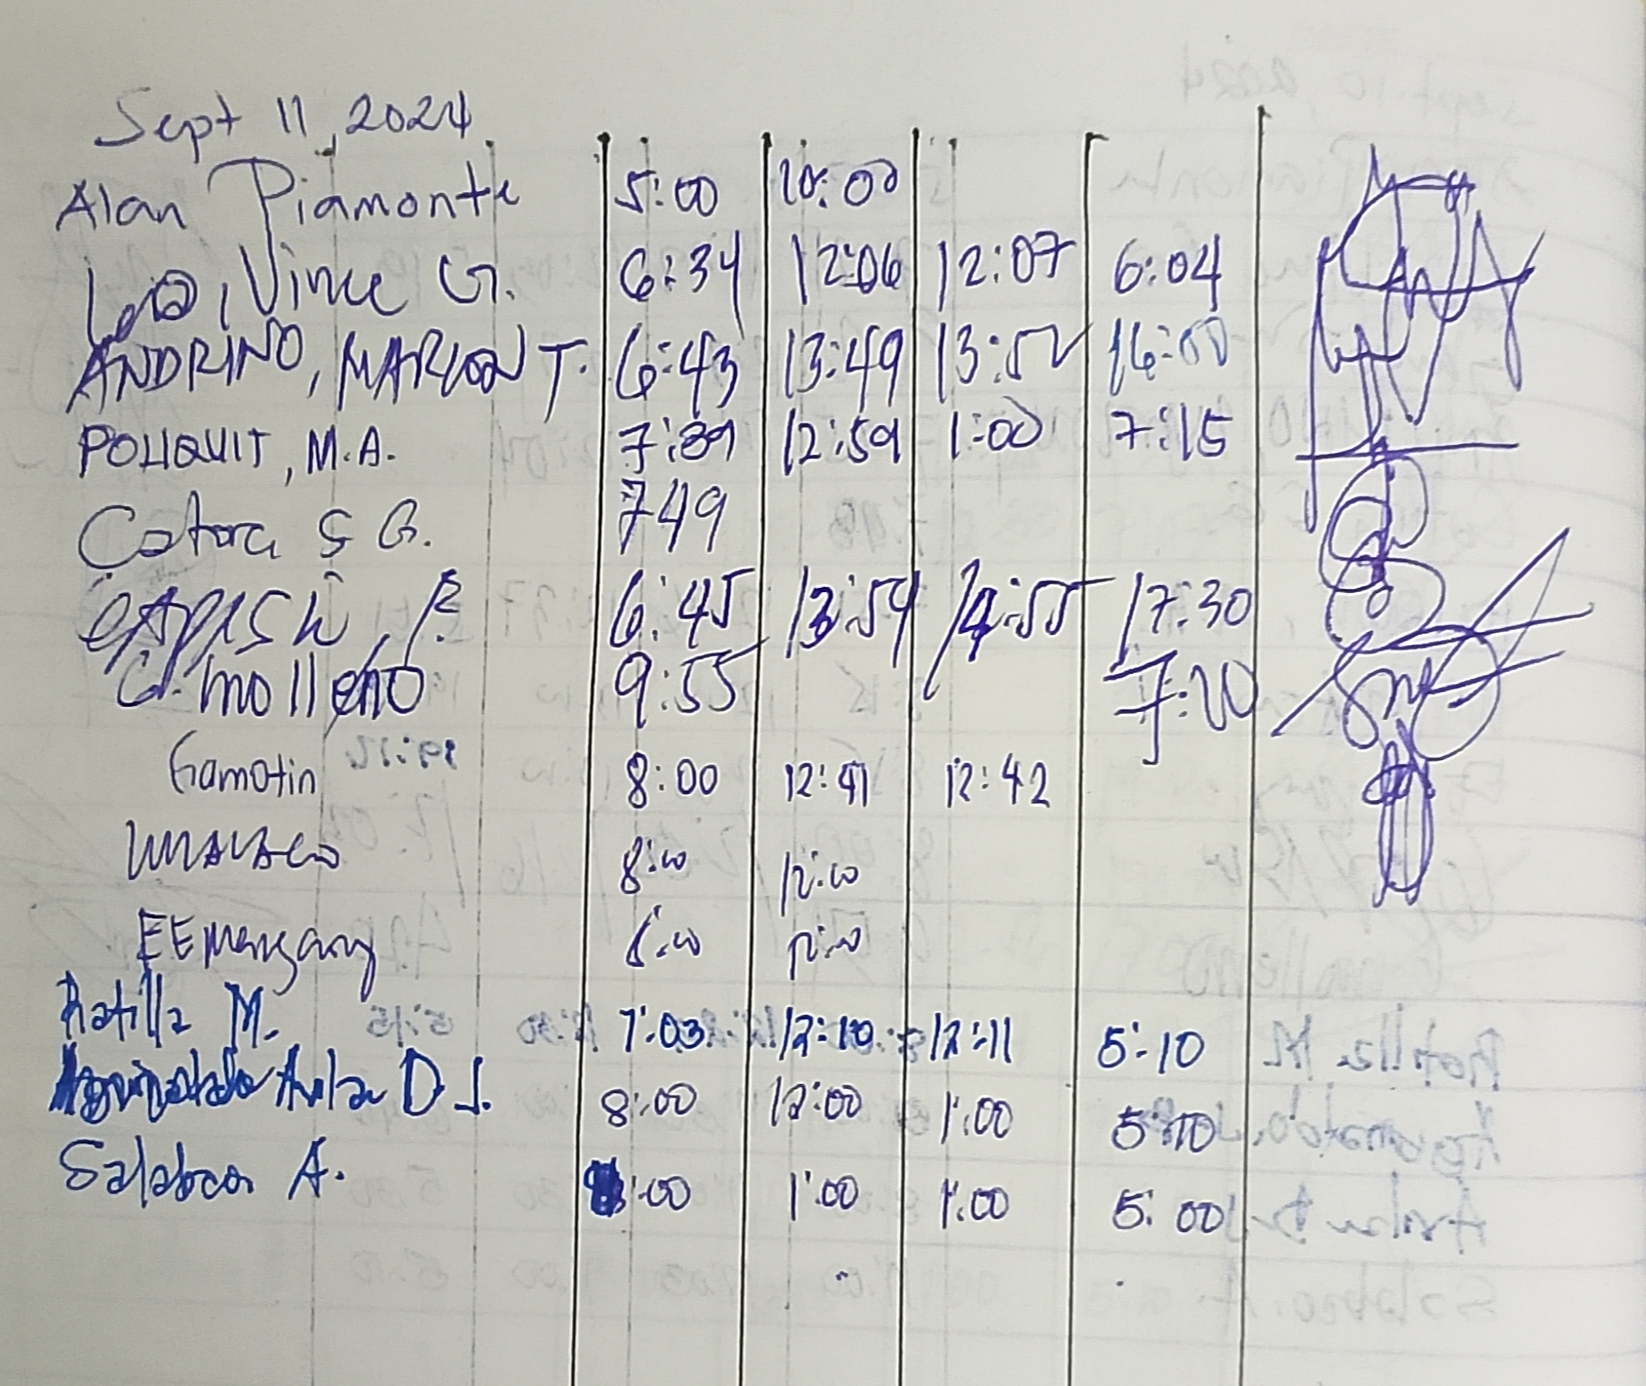 Sept 11, 2024
Alan Piamonte 5:00 10:00
Vince G. 6:34 12:06 12:07 6:04
ANDRINO, MARLON T. 6:43 13:49 13:52 16:00
POLIQUIT, M.A. 7:39 12:59 1:00 7:15
Catora S G. 749
6:45 13:54 14:55 17:30
G. Molleno 9:55 7:20
Gamotin 8:00 12:41 12:42
8:00 12:00
EEMangany 8:00 12:00
Ratilla M. 7:03 12:10 12:11 5:10
D J. 8:00 12:00 1:00 5:10
Salabao A. :00 1:00 1:00 5:00